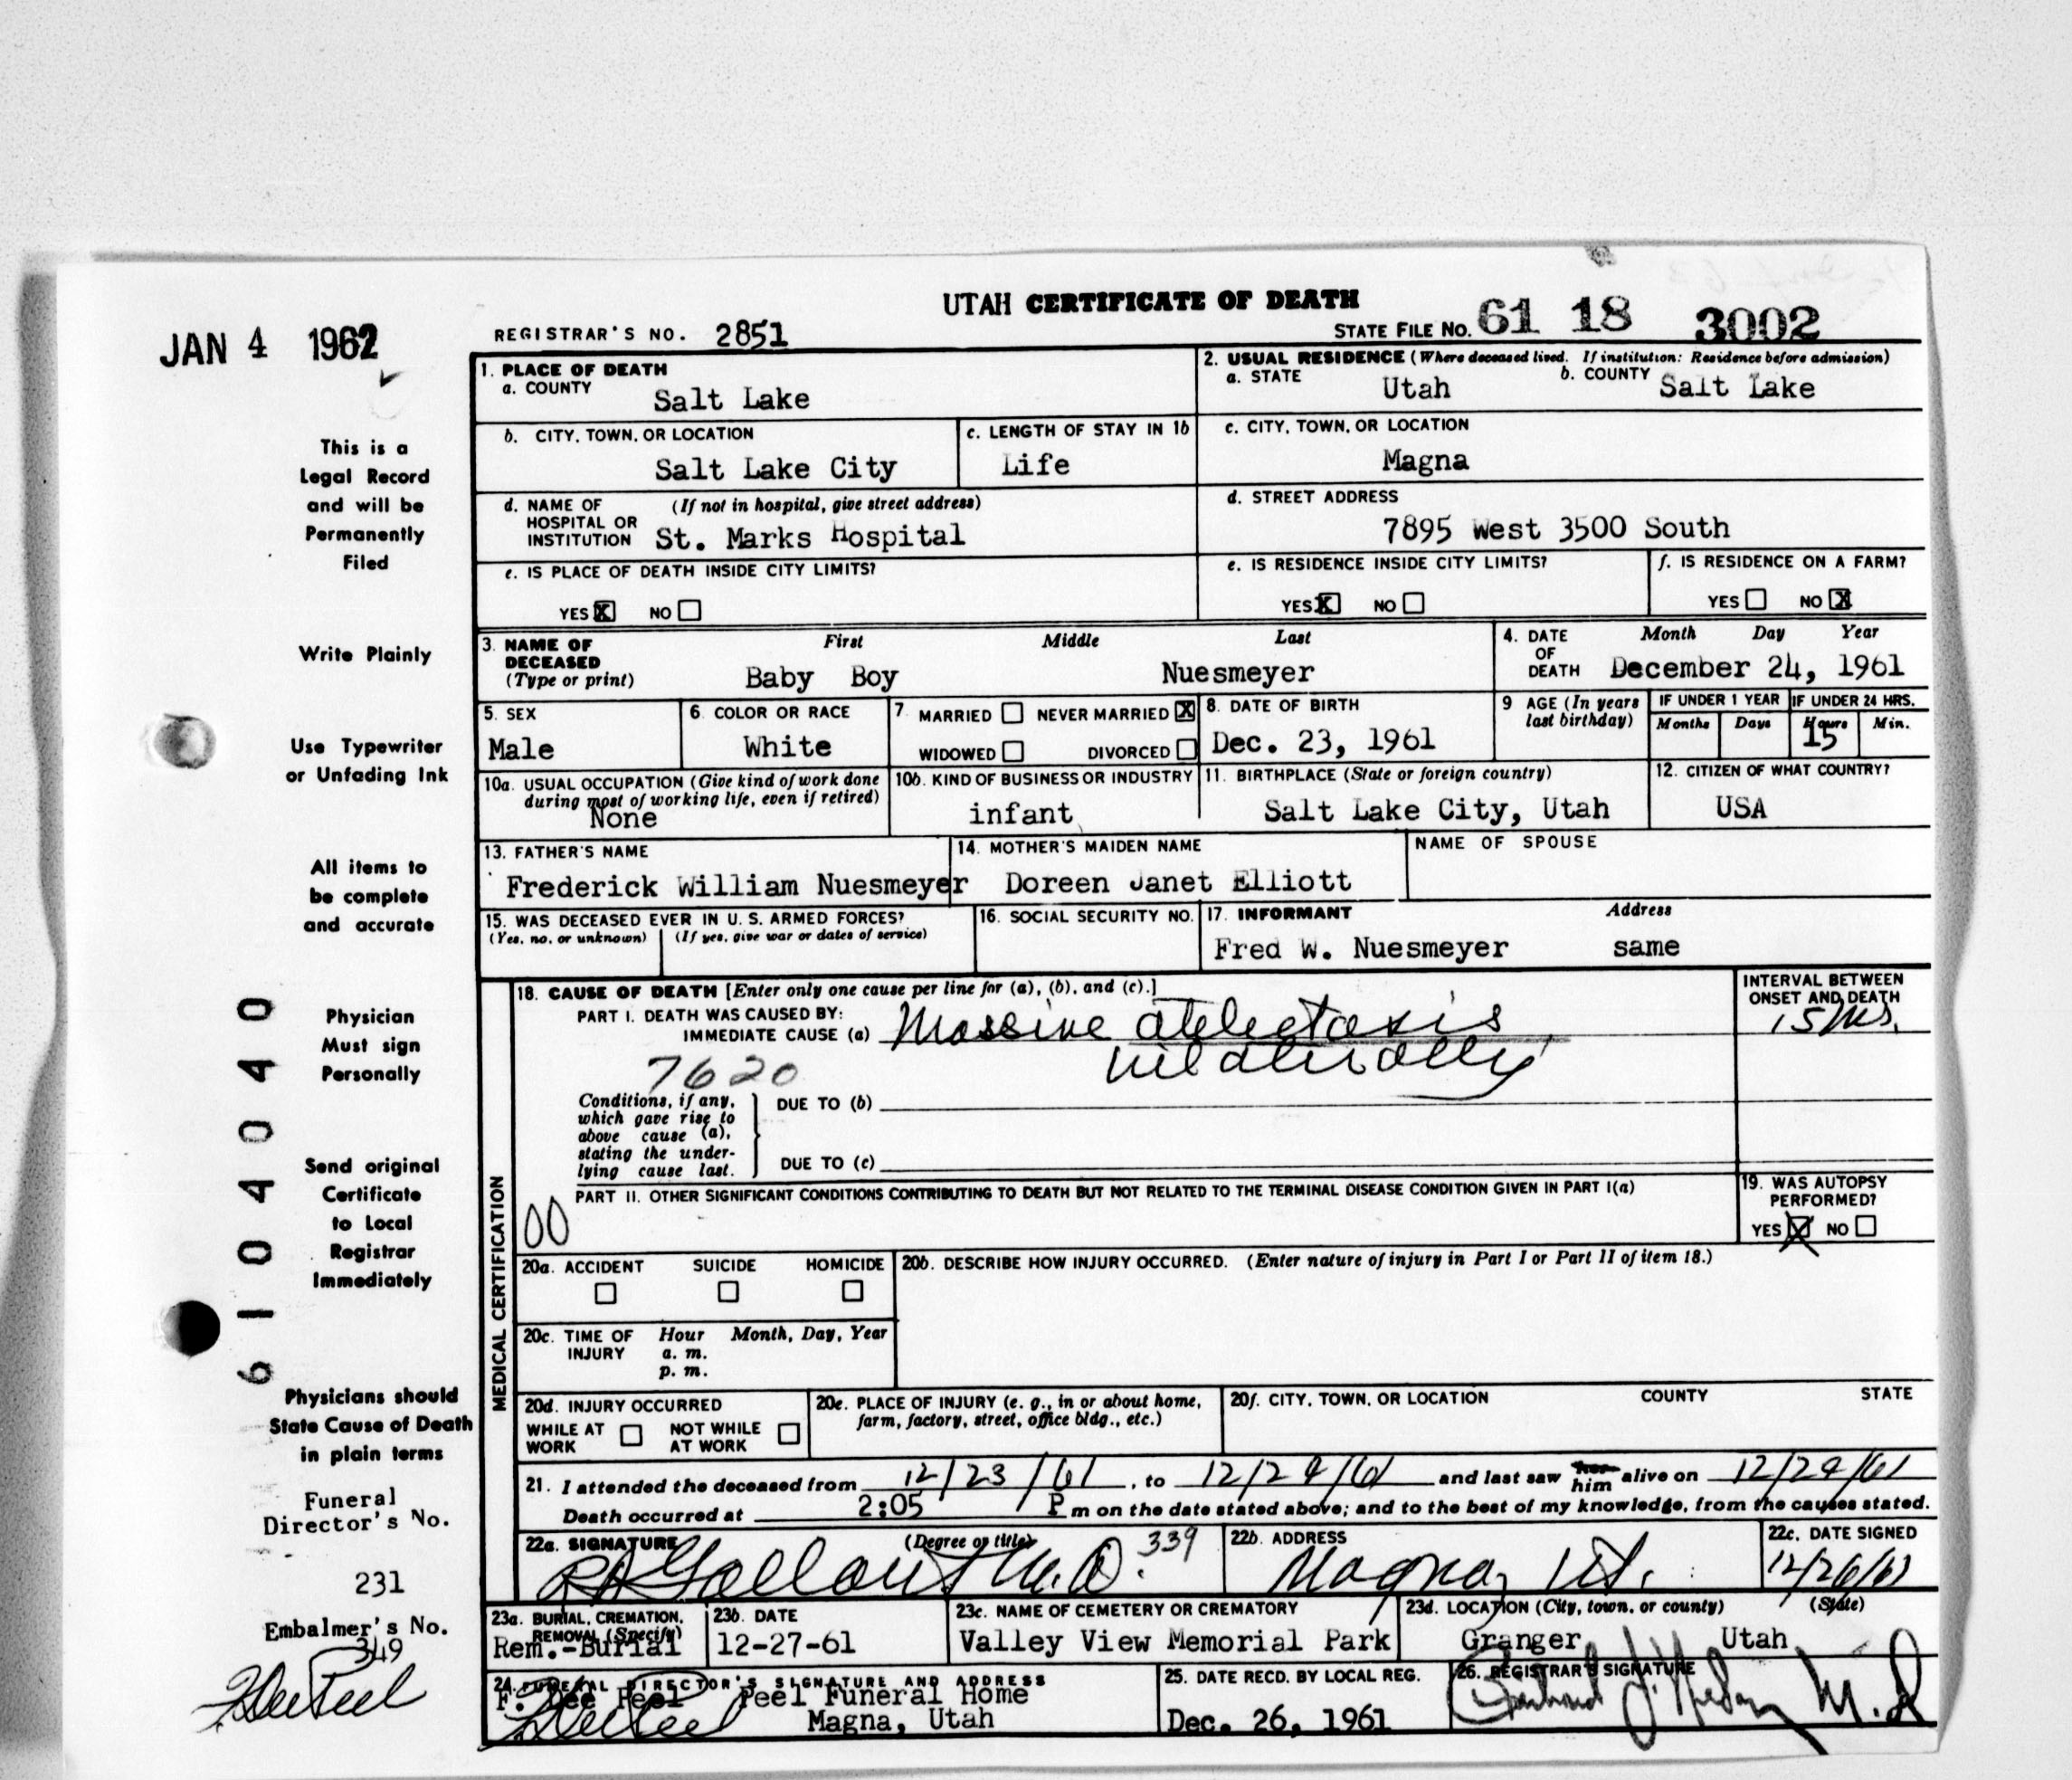 UTAH CERTIFICATE OF DEATH
JAN 4 1962
REGISTRAR'S NO. 2851
STATE FILE NO. 61 18 3002
1. PLACE OF DEATH
a. COUNTY
Salt Lake
2. USUAL RESIDENCE (Where deceased lived. If institution: Residence before admission)
a. STATE Utah b. COUNTY Salt Lake
b. CITY, TOWN, OR LOCATION
Salt Lake City
c. LENGTH OF STAY IN 1b
Life
c. CITY, TOWN, OR LOCATION
Magna
d. NAME OF HOSPITAL OR INSTITUTION (If not in hospital, give street address)
St. Marks Hospital
d. STREET ADDRESS
7895 West 3500 South
e. IS PLACE OF DEATH INSIDE CITY LIMITS?
YES X NO
e. IS RESIDENCE INSIDE CITY LIMITS?
YES X NO
f. IS RESIDENCE ON A FARM?
YES NO X
3. NAME OF DECEASED (Type or print)
First Middle Last
Baby Boy Nuesmeyer
4. DATE OF DEATH
Month Day Year
December 24, 1961
5. SEX
Male
6. COLOR OR RACE
White
7. MARRIED NEVER MARRIED X
WIDOWED DIVORCED
8. DATE OF BIRTH
Dec. 23, 1961
9 AGE (In years last birthday)
IF UNDER 1 YEAR
Months Days
IF UNDER 24 HRS.
Hours Min.
15
10a. USUAL OCCUPATION (Give kind of work done during most of working life, even if retired)
None
10b. KIND OF BUSINESS OR INDUSTRY
infant
11. BIRTHPLACE (State or foreign country)
Salt Lake City, Utah
12. CITIZEN OF WHAT COUNTRY?
USA
13. FATHER'S NAME
Frederick William Nuesmeyer
14. MOTHER'S MAIDEN NAME
Doreen Janet Elliott
NAME OF SPOUSE
15. WAS DECEASED EVER IN U. S. ARMED FORCES?
(Yes, no, or unknown) (If yes, give war or dates of service)
16. SOCIAL SECURITY NO.
17. INFORMANT Address
Fred W. Nuesmeyer same
MEDICAL CERTIFICATION
18. CAUSE OF DEATH [Enter only one cause per line for (a), (b), and (c).]
PART I. DEATH WAS CAUSED BY:
IMMEDIATE CAUSE (a) Massive atelectasis
7620
INTERVAL BETWEEN ONSET AND DEATH
15 hrs.
Conditions, if any, which gave rise to above cause (a), stating the underlying cause last.
DUE TO (b)
DUE TO (c)
PART II. OTHER SIGNIFICANT CONDITIONS CONTRIBUTING TO DEATH BUT NOT RELATED TO THE TERMINAL DISEASE CONDITION GIVEN IN PART I(a)
00
19. WAS AUTOPSY PERFORMED?
YES X NO
20a. ACCIDENT SUICIDE HOMICIDE
20b. DESCRIBE HOW INJURY OCCURRED. (Enter nature of injury in Part I or Part II of item 18.)
20c. TIME OF INJURY Hour Month, Day, Year
a. m.
p. m.
20d. INJURY OCCURRED
WHILE AT WORK NOT WHILE AT WORK
20e. PLACE OF INJURY (e. g., in or about home, farm, factory, street, office bldg., etc.)
20f. CITY, TOWN, OR LOCATION COUNTY STATE
21. I attended the deceased from 12/23/61, to 12/24/61 and last saw her him alive on 12/24/61
Death occurred at 2:05 P m on the date stated above; and to the best of my knowledge, from the causes stated.
22a. SIGNATURE (Degree or title)
M.D. 339
22b. ADDRESS
Magna, Ut.
22c. DATE SIGNED
12/26/61
23a. BURIAL, CREMATION, REMOVAL (Specify)
Rem.-Burial
23b. DATE
12-27-61
23c. NAME OF CEMETERY OR CREMATORY
Valley View Memorial Park
23d. LOCATION (City, town, or county) (State)
Granger Utah
24. FUNERAL DIRECTOR'S SIGNATURE AND ADDRESS
F. Dee Peel Peel Funeral Home
Magna, Utah
25. DATE RECD. BY LOCAL REG.
Dec. 26, 1961
26. REGISTRAR'S SIGNATURE
M.D
This is a
Legal Record
and will be
Permanently
Filed
Write Plainly
Use Typewriter
or Unfading Ink
All items to
be complete
and accurate
Physician
Must sign
Personally
Send original
Certificate
to Local
Registrar
Immediately
Physicians should
State Cause of Death
in plain terms
6104040
Funeral
Director's No.
231
Embalmer's No.
349